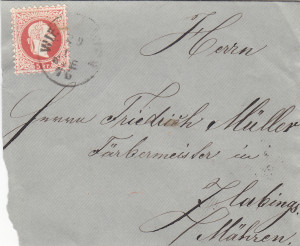 WIE
5 kr
Herrn
Herrn Friedrich Müller
Färbermeister in
Zlabings
Mähren